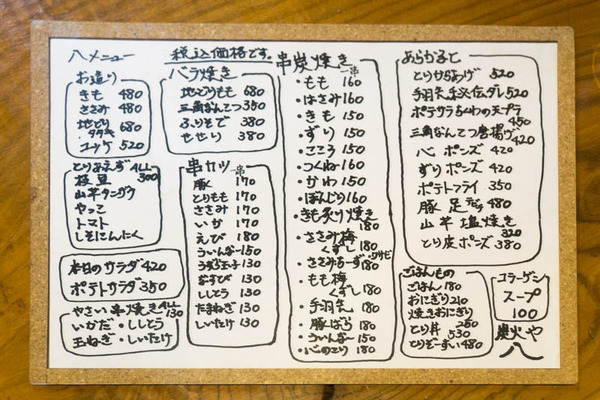 八メニュー
税込価格です。
お造り
きも 480
ささみ 480
地どり
タタキ 680
ユッケ 520
とりあえず ALL
300
枝豆
山芋タンザク
やっこ
トマト
しそにんにく
本日のサラダ 420
ポテトサラダ 350
やさい串焼き ALL
130
いかだ・ししとう
玉ねぎ・しいたけ
バラ焼き
地どりもも 680
三角なんこつ 350
ふりそで 380
せせり 380
串カツ 一串
豚 170
とりもも 170
ささみ 170
いか 170
えび 180
ういんなー 150
うずら玉子 130
なすび 130
ししとう 130
たまねぎ 130
しいたけ 130
串炭焼き
一串
・もも 160
・はさみ 160
・きも 150
・ずり 150
・こころ 150
・つくね 160
・かわ 150
・ぼんじり 160
・きも炙り焼き
180
・ささみ梅
くずし 180
・ささみちーず
180
・もも梅
くずし 180
・手羽先 180
・豚ばら 180
・ういんなー 150
・心のこり 180
あらかると
とりからあげ 520
手羽先秘伝ダレ 520
ポテサラちくわの天プラ
450
三角なんこつ唐揚げ 420
心ポンズ 420
ずりポンズ 420
ポテトフライ 350
豚足 480
山芋塩焼き
320
とり皮ポンズ 380
ごはんもの
ごはん 180
おにぎり 210
焼きおにぎり
250
とり丼 530
とりぞーすい 480
コラーゲン
スープ
100
炭火や
八